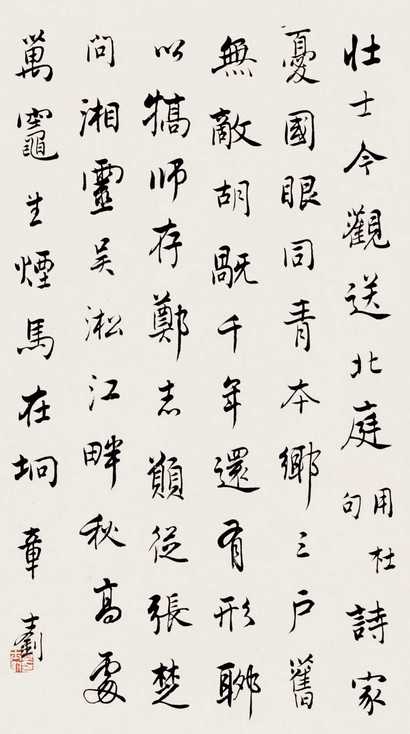 壯士今觀送北庭用杜句詩家
憂國眼同青本鄉三戶舊
無敵胡千年還有形聊
以犒師存鄭志願從張楚
問湘靈吳淞江畔秋高處
萬竈生煙馬在坰 章士釗